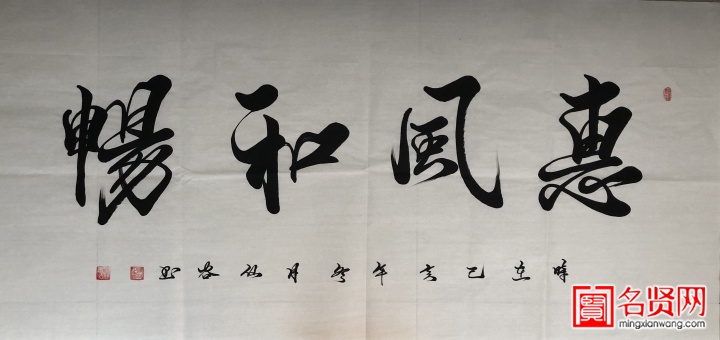 惠風和暢
時在己亥年冬月
名贤网
mingxianwang.com